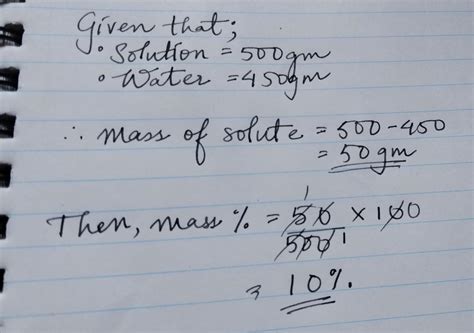 Given that;
• Solution = 500gm
• Water = 450gm
∴ mass of solute = 500-450
= 50gm
Then, mass % = 50/500 × 100
= 10%.